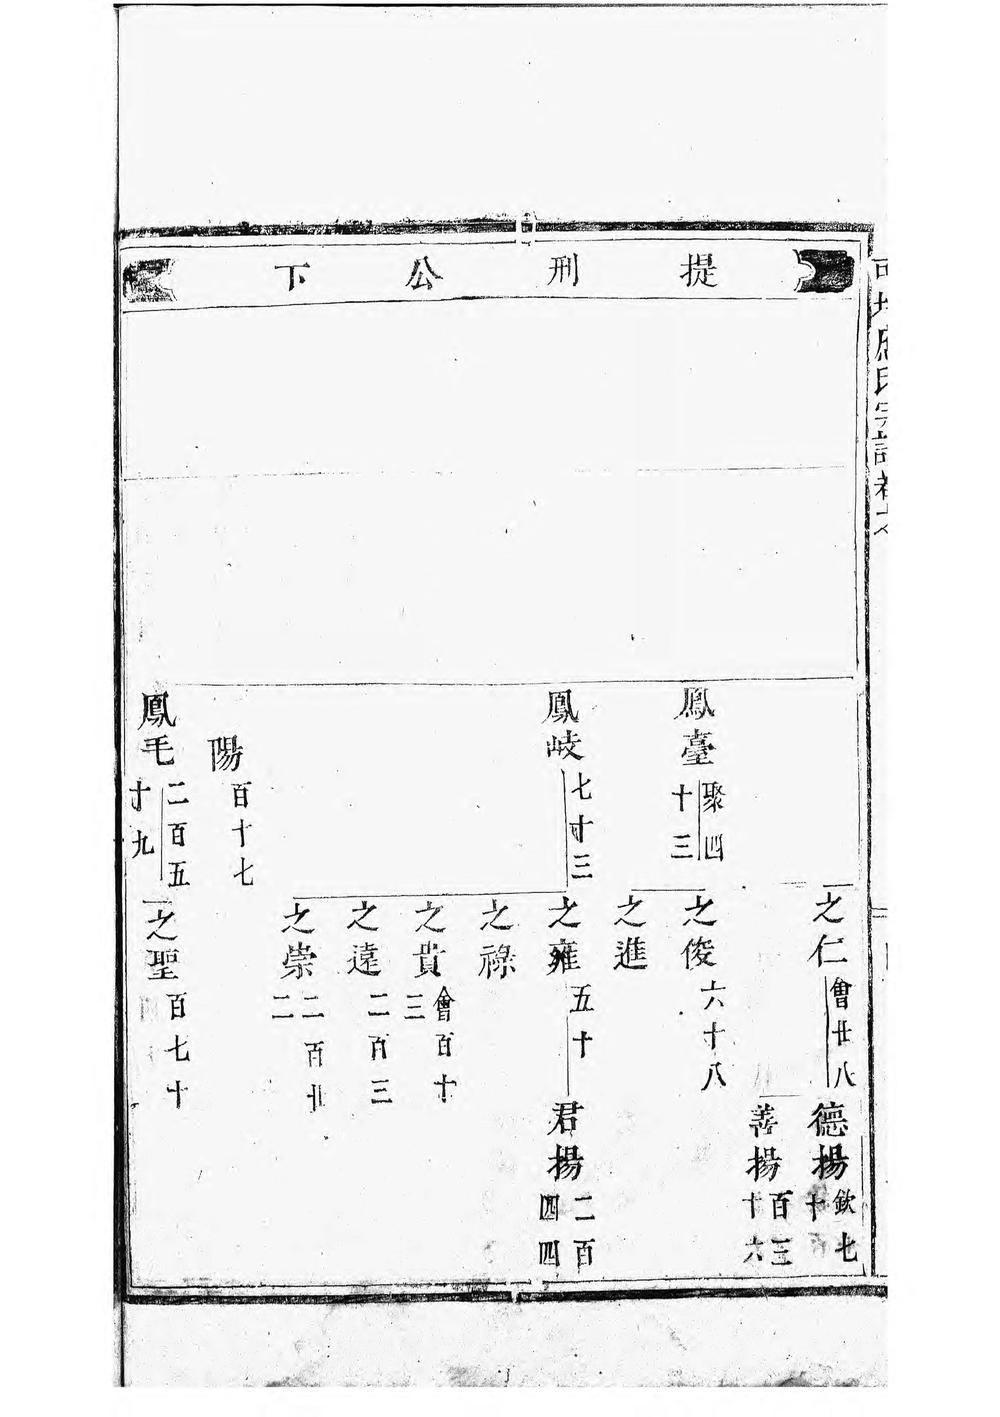 提刑公下
之仁 會廿八
德揚 欽七十
善揚 百三十六
鳳臺 聚四十三
之俊 六十八
之進
鳳岐 七十三
之雍 五十
君揚 二百四四
之祿
之貴 會百十三
之遠 二百三
之崇 二百廿二
陽 百十七
鳳毛 二百五十九
之聖 百七十